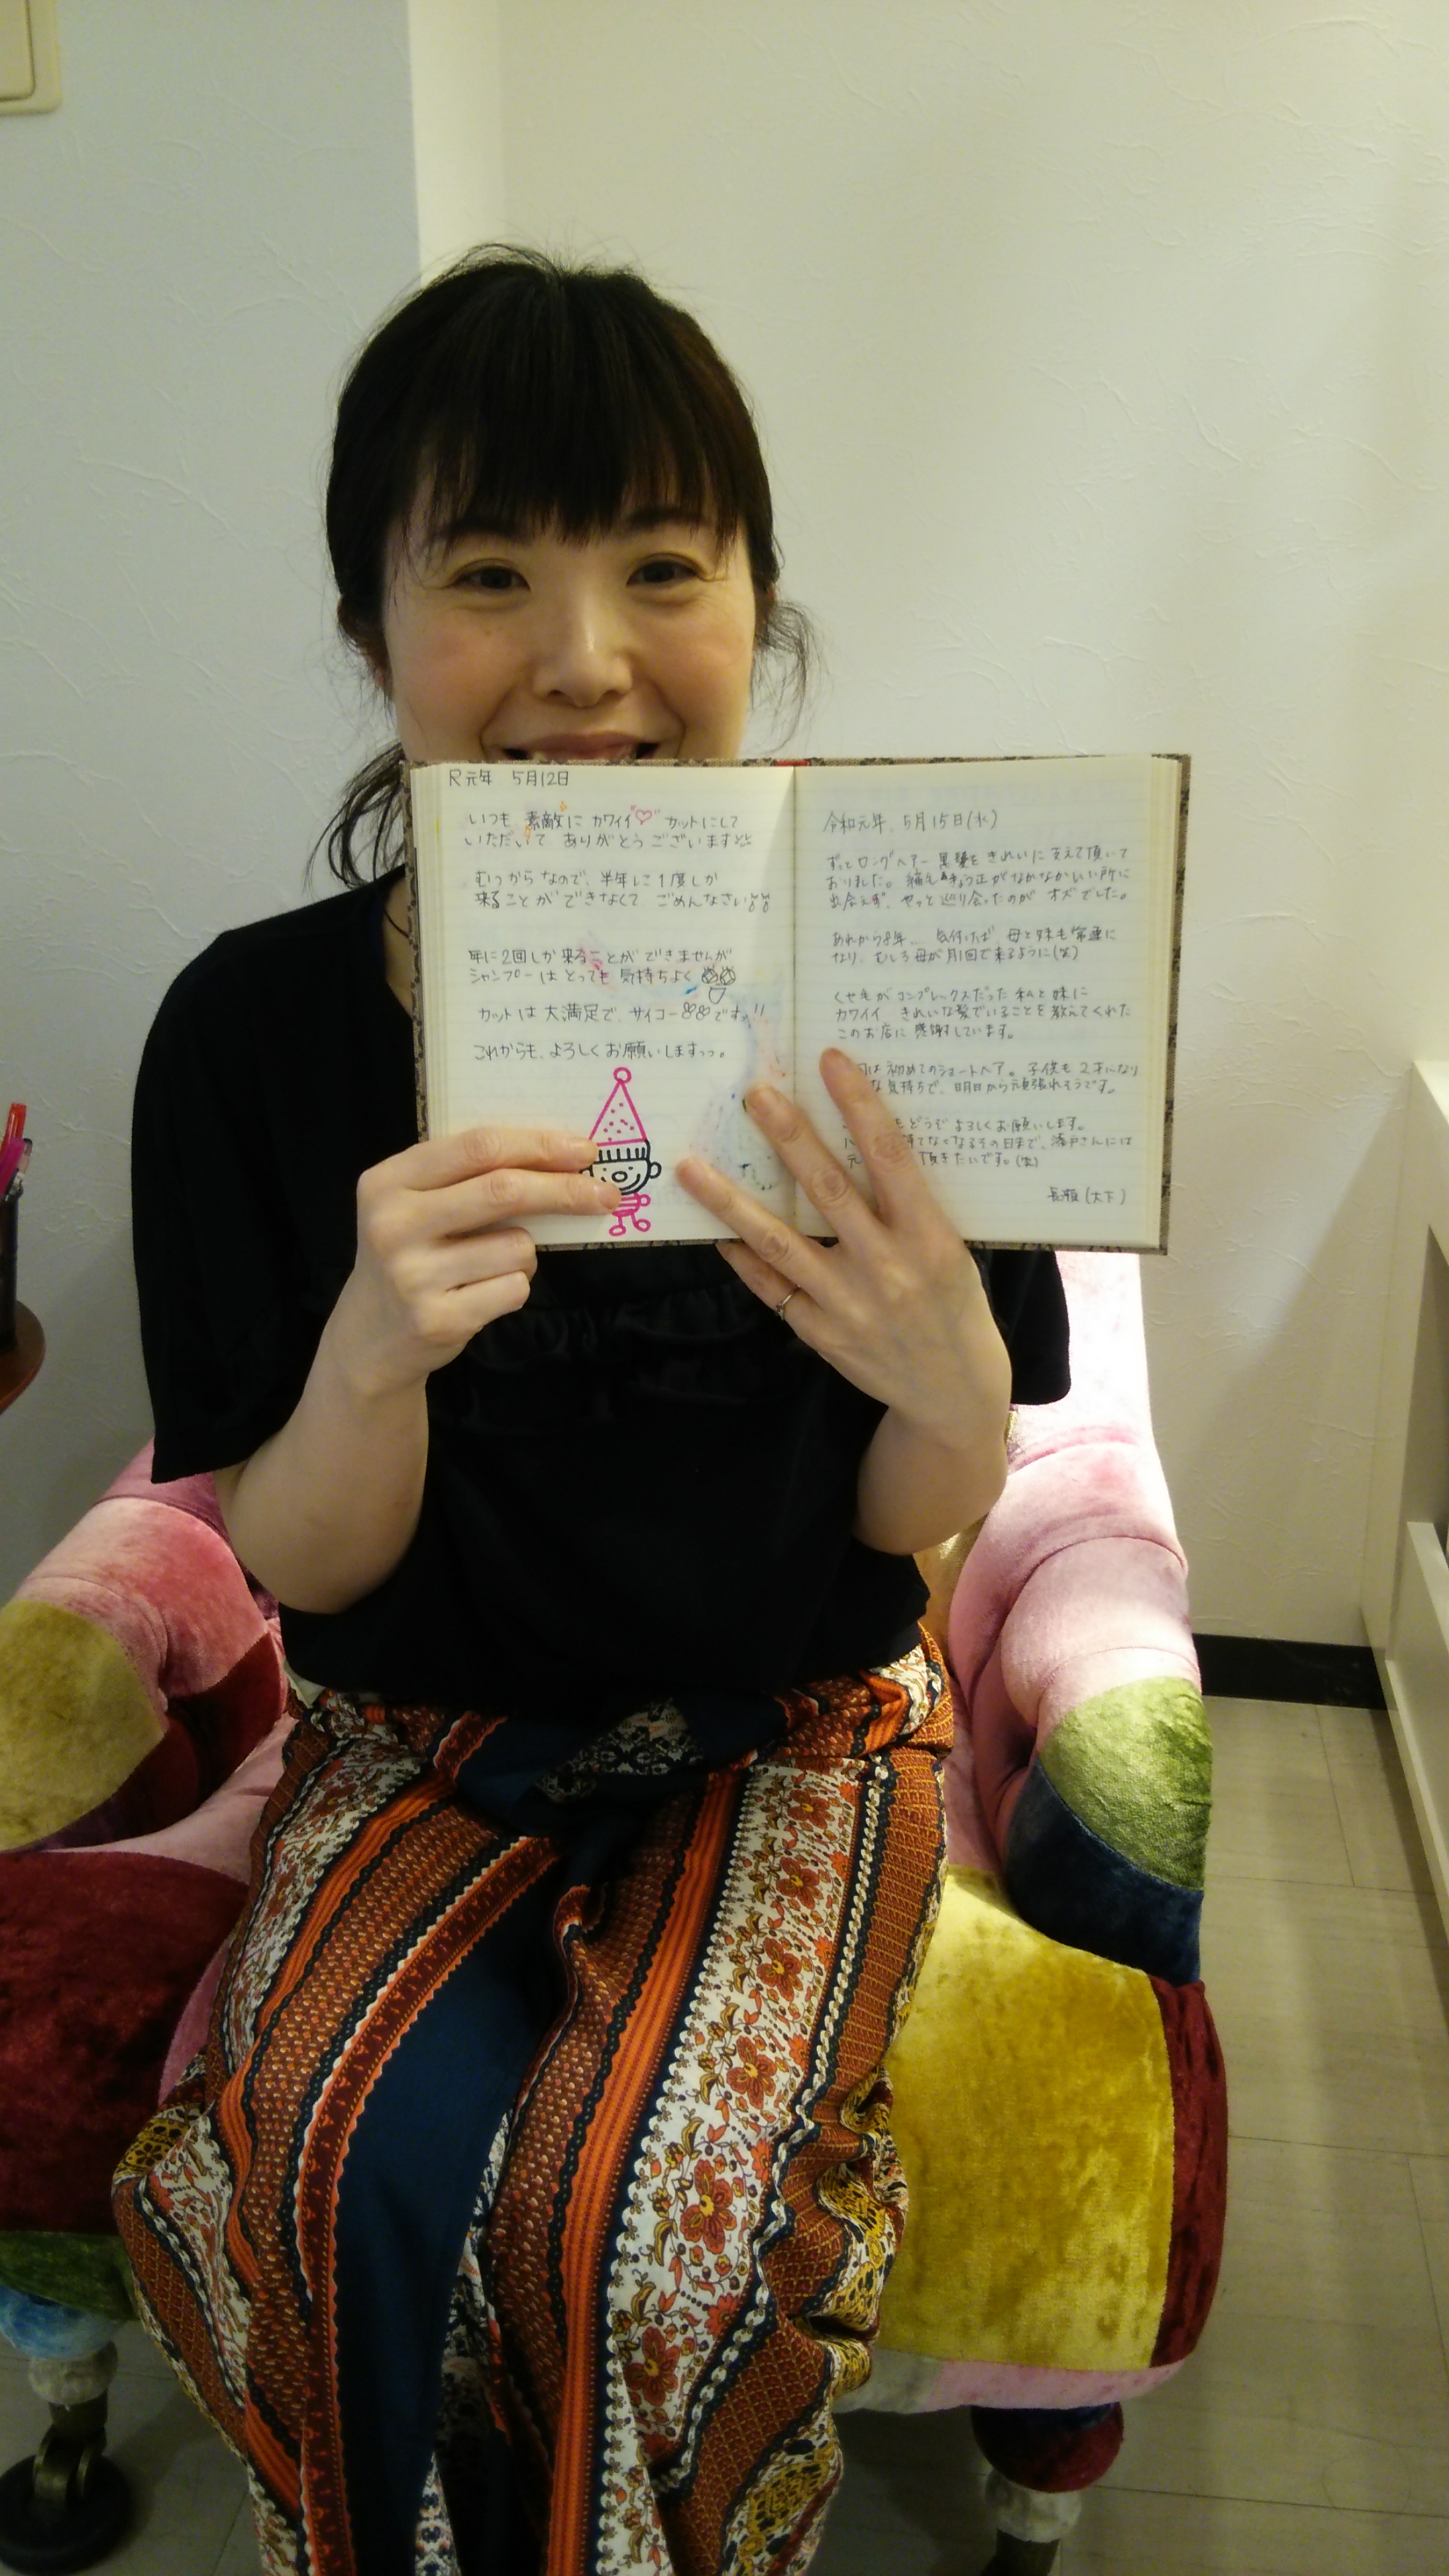 R元年 5月12日
いつも 素敵に カワイイ カットにして
いただいて ありがとう ございます
むつからなので、半年に1度しか
来ることができなくて ごめんなさい
年に2回しか来ることができませんが
シャンプーは とっても 気持ちよく
カットは大満足で、サイコーです!!
これからも、よろしくお願いしますっっ。
令和元年、5月15日(水)
ずっとロングヘアー 黒髪を きれいに 支えて頂いて
おりました。縮毛きょう正がなかなかいい所に
出会えず、やっと巡り会ったのが オズでした。
あれから8年... 気付けば 母と妹も常連に
なり、むしろ母が月1回で来るように(笑)
くせ毛がコンプレックスだった 私と妹に
カワイイ きれいな髪でいることを教えてくれた
このお店に 感謝しています。
回は初めてのショートヘア。子供も2才になり
な気持ちで、明日から頑張れそうです。
もどうぞ よろしくお願いします。
てなくなるその日まで、さんには
元 頂きたいです。(笑)
長瀬(大下)